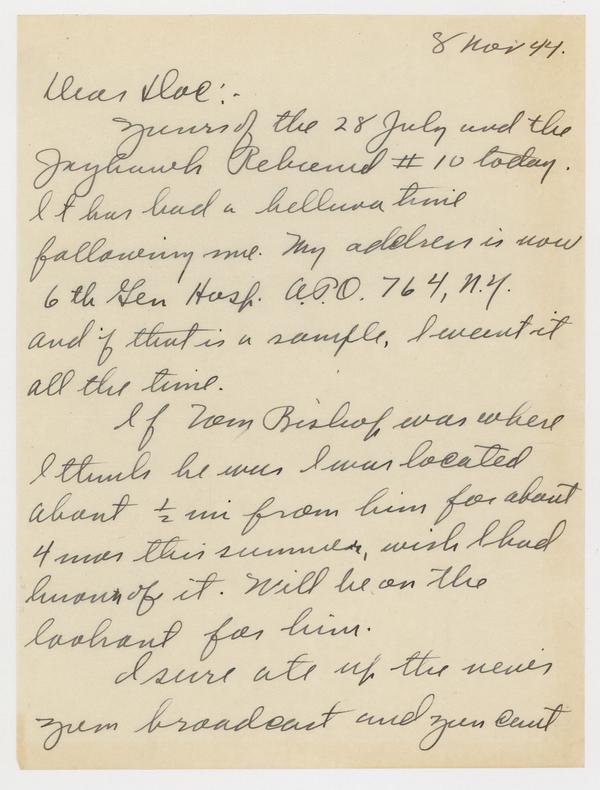 8 Nov 44.
Dear Doc:-
Yours of the 28 July and the
Jayhawk Rebound # 10 today.
It has had a helluva time
following me. My address is now
6th Gen Hosp. A.P.O. 764, N.Y.
and if that is a sample, I want it
all the time.
If Tom Bishop was where
I think he was I was located
about ½ mi from him for about
4 mos this summer, wish I had
known of it. Will be on the
lookout for him.
I sure ate up the news
you broadcast and you cant